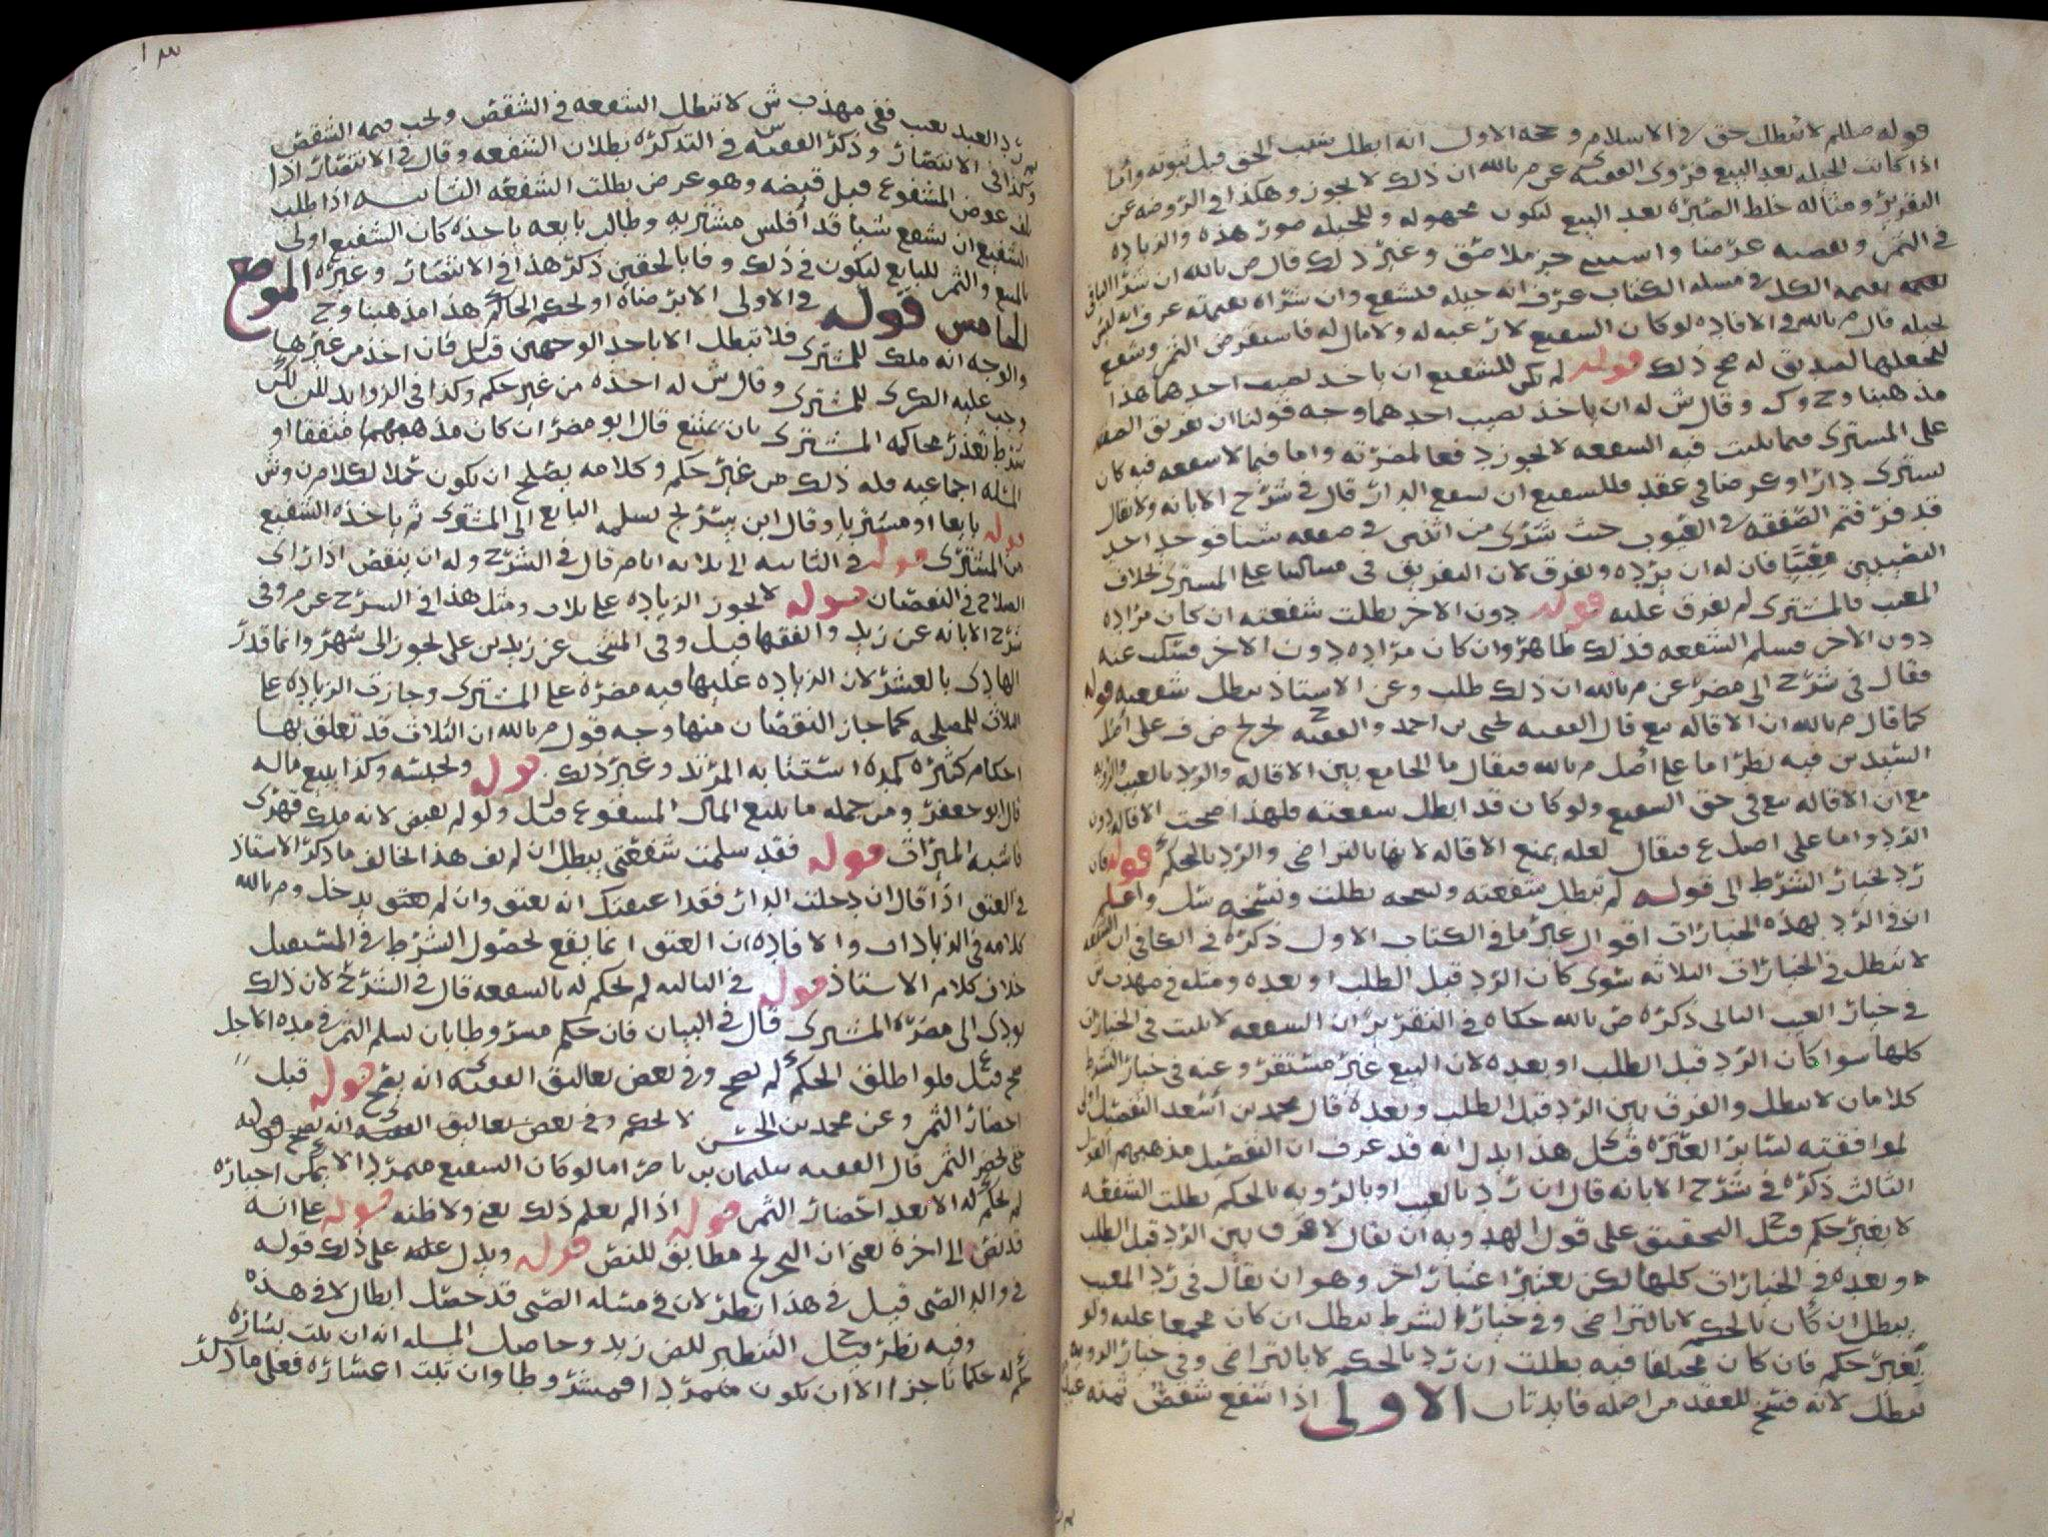 قوله صللم لا تبطل حق في الاسلام وحجه الاول انه ابطل سبب الحق قبل ثبوته واما
اذا كانت الحيله بعد البيع فروى الفقيه ى عن م بالله ان ذلك لا يجوز وهكذا في الروضه عن
التقرير ومثاله خلط الصبره بعد البيع ليكون مجهوله وللحيله صور هذه والزياده
في الثمن وبعضه عرضا وغير ذلك قال ص بالله ان شرا الباقي
بقيمه الكل في مسله الكتاب عرف انه حيله فلشفع وان شراه بقيمته عرف انه ليس
بحيله قال م بالله في الافاده لو كان الشفيع لا رغبه له ولا مال له فاستقرض الثمن وشفع
ليجعلها لصديق له صح ذلك قوله لم يكن للشفيع ان ياخذ نصيب احدهما هذا
مذهبنا وح وك وقال ش له ان ياخذ نصيب احدهما وجه قولنا ان تفريق الصفقه
على المشترى فيما يثبت فيه الشفعه لا يجوز دفعا لمضرته واما فيما لا شفعه فيه كان
يشترى دارا او عرضا في عقد فللشفيع ان يشفع الدار قال في شرح الابانه ولا يقال
قد فرقتم الصفقه في العيوب حيث شرى من اثنين في صفقه شيا فوجد احد
النصيبين معيبا فان له ان يرده ونفرق لان التفريق في مسالتنا على المشترى بخلاف
المعيب فالمشترى لم يفرق عليه قوله دون الاخر بطلت شفعته ان كان مراده
دون الاخر فسلم الشفعه فذلك ظاهر وان كان مراده دون الاخر فسكت عنه
فقال في شرح ابي مضر عن م بالله ان ذلك طلب وعن الاستاذ يبطل شفعته قوله
كما قال م بالله ان الاقاله بيع قال الفقيه يحيى بن احمد والفقيه ح تخريج ض ف على اصل
السيدين فيه نظر اما على اصل م بالله فيقال ما الجامع بين الاقاله والرد بالعيب والرويه
مع ان الاقاله بيع في حق الشفيع ولو كان قد ابطل شفعته فلهذا صحت الاقاله دون
الرد واما على اصل ع فيقال لعله يمنع الاقاله لانها بالتراضى والرد بالحكم قوله فان
رد بخيار الشرط الى قوله لم تبطل شفعته ونسخه بطلت ونسخه واعلم
ان في الرد بهذه الخيارات اقوال غير ما في الكتاب الاول ذكره في الكافي ان الشفعه
لا تبطل في الخيارات الثلاثه سوى كان الرد قبل الطلب او بعده ومثله في مهذب ش
في خيار العيب الثاني ذكره ص بالله حكاه في التقرير ان الشفعه لا يثبت في الخيارات
كلها سوا كان الرد قبل الطلب او بعده لان البيع غير مستقر وعنه في خيار الشرط
كلامان لا تبطل والفرق بين الرد قبل الطلب وبعده قال محمد بن اسعد التفصيل اولى
لموافقته لساير العتره قيل هذا يدل انه قد عرف ان التفصيل مذهبهم القول
الثالث ذكره في شرح الابانه قال ان رد بالعيب او بالرويه بالحكم بطلت الشفعه
لا بغير حكم قيل ح التحقيق على قول الهدويه ان يقال لا فرق بين الرد قبل الطلب
وبعده في الخيارات كلها لكن يعتبر اعتبار اخر وهو ان يقال في رد المعيب
يبطل ان كان بالحكم لا بالتراضى وفي خيار الشرط يبطل ان كان مجمعا عليه ولو
بغير حكم فان كان مختلفا فيه بطلت ان رد بالحكم لا بالتراضى وفي خيار الرويه
تبطل لانه فسخ للعقد من اصله فايدتان الاولى اذا شفع شقص ثمنه عبد
ثم رد العبد بعيب ففي مهذب ش لا تبطل الشفعه في الشقص ويجب قيمه الشقص
وكذا في الانتصار وذكر الفقيه س في التذكره بطلان الشفعه وقال في الانتصار اذا
تلف عوض المشفوع قبل قبضه وهو عرض بطلت الشفعه الثانيه اذا طلب
الشفيع ان يشفع شيا قد افلس مشتريه وطالب بايعه باخذه كان الشفيع اولى
بالمبيع والثمن للبايع ليكون في ذلك وفا بالحقين ذكر هذا في الانتصار وغيره الموضع
الخامس قوله في الاولى الا برضاه او بحكم الحاكم هذا مذهبنا وح
والوجه انه ملك للمشترى فلا تبطل الا باحد الوجهين قيل ل فان اخذ من غيرها
وجب عليه الكرى للمشترى وقال ش له اخذه من غير حكم وكذا في الزوايد للن لكن
شرط تعذر محاكمه المشترى بان يمتنع قال ابو مضر ان كان مذهبهما متفقا او
المسله اجماعيه فله ذلك من غير حكم وكلامه يصلح ان يكون محملا لكلام ن وش
قوله بايعا او مشتريا وقال ابن سريج يسلمه البايع الى المشترى ثم ياخذه الشفيع
من المشترى قوله في الثانيه الى ثلاثه ايام قال في الشرح وله ان ينقص اذا راى
الصلاح في النقصان قوله لا يجوز الزياده على ثلاث ومثل هذا في الشرح عن م وفي
شرح الابانه عن زيد والفقها قيل وفي المنتخب عن زيد بن على يجوز الى شهر وانما قدر
الهادى بالعشر لان الزياده عليها فيه مضره على المشترى وجازت الزياده على
الثلاث للمصلحه كما جاز النقصان منها وجه قول م بالله ان الثلاث قد تعلق بها
احكام كثيره كمده استتابه المرتد وغير ذلك قوله ويحبسه وكذا يبيع ماله
قال ابو جعفر ومن جمله ما يبيع المال المشفوع قيل ل ولو لم يقبض لانه ملك قهرى
فاشبه الميراث قوله فقد سلمت شفعتى يبطل ان لم يف هذا يخالف ما ذكر الاستاذ
في العتق اذا قال ان دخلت الدار فقد اعتقتك انه يعتق وان لم يدخل وم بالله
كلامه في الزيادات والافاده ان العتق انما يقع لحصول الشرط في المستقبل
خلاف كلام الاستاذ قوله في الثالثه لم يحكم له بالشفعه قال في الشرح لان ذلك
يودى الى مضره المشترى قال في البيان فان حكم مشروطا بان يسلم الثمن في مده الاجل
صح قيل ع فلو اطلق الحكم لم يصح وفي بعض تعاليق الفقيه ى انه يصح قوله قبل
احضار الثمن وعن محمد بن الحسن لا يحكم وفي بعض تعاليق الفقيه انه يصح
حتى يحضر الثمن قال الفقيه سليمان بن ناصر اما لو كان الشفيع متمردا لا يمكن اجباره
لم يحكم له الا بعد احضار الثمن قوله اذا لم يعلم ذلك يعنى ولا ظنه قوله على انه
قد نص الى اخره يعنى ان التخريج مطابق للنص قوله ويدل عليه على ذلك قوله
في والد الصبى قيل في هذا نظر لان في مسله الصبى قد حصل ابطال لا في هذه
وفيه نظر قيل ح التنظير للض زيد وحاصل المسله انه ان ثبت يساره
حكم له حكما ناجزا الا ان يكون متمردا فمشروطا وان ثبت اعساره فعلى ما ذكر